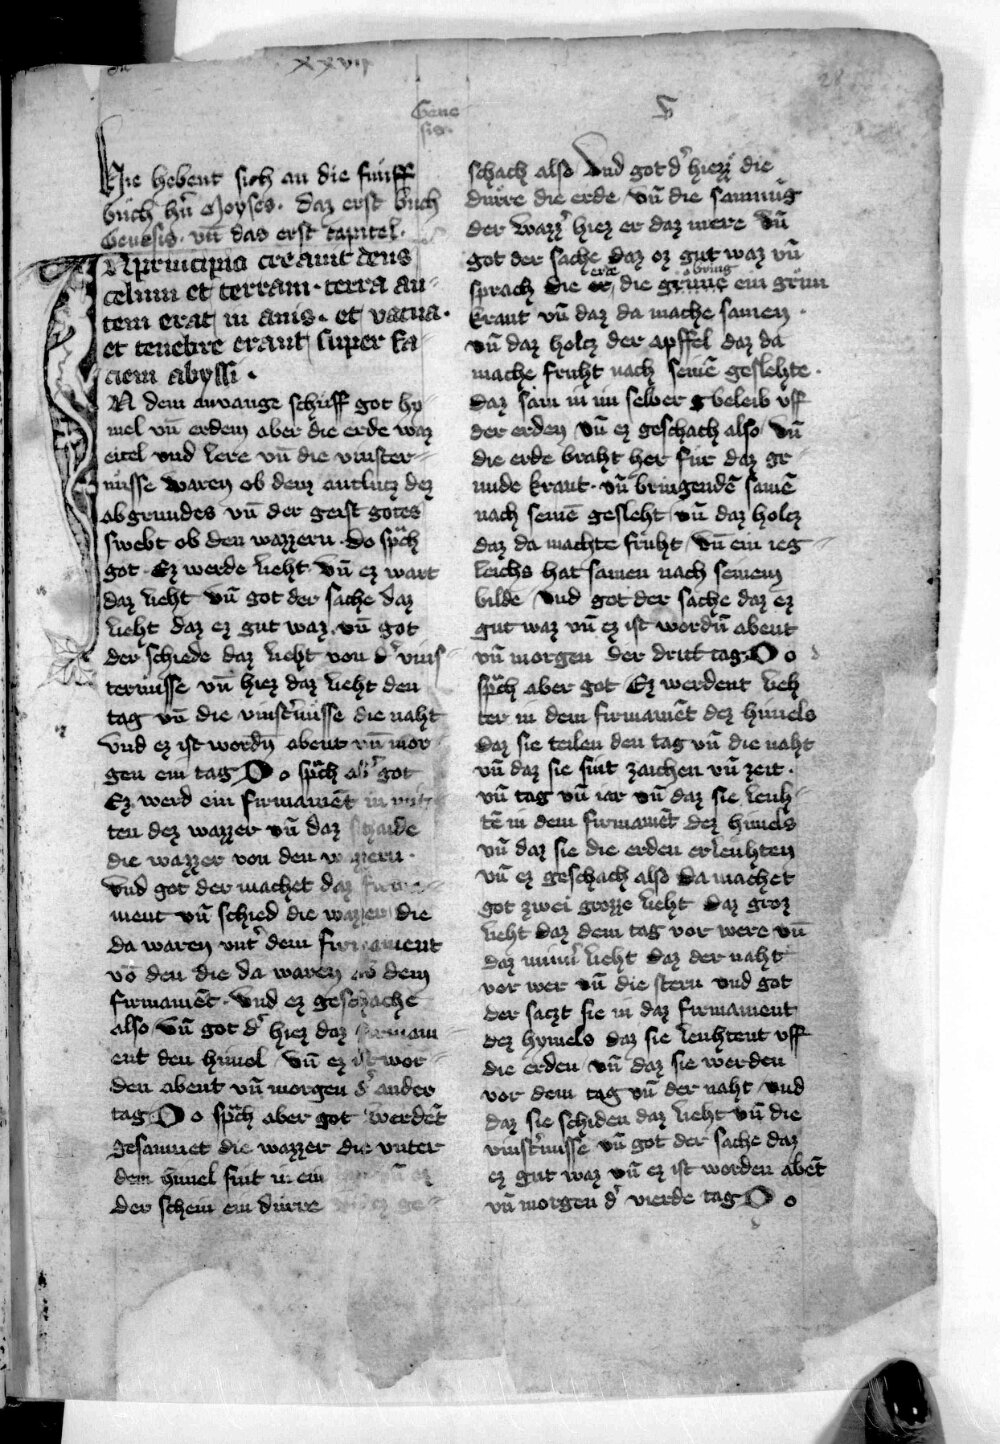 xxviij
28
Gene
sis.
G
Hie hebent sich an die funff
buch hˀn Moyses. daz erst buch
Genesis. vn̄ das erst capitel.
IN principio creauit deus
celum et terram. terra au⸗
tem erat in anis. et vacua.
et tenebre erant super fa⸗
ciem abyssi.
IN dem anvange schuff got hy⸗
mel vn̄ erdem aber die erde waz
eitel vnd lere vn̄ die vinster⸗
nusse waren ob dem antlucz dez
abgrundes vn̄ der geist gotes
swebt ob den wazzern. do spͣch
got. Ez werde lieht. vn̄ ez wart
daz lieht vn̄ got der sache daz
lieht daz ez gut waz. vn̄ got
der schiede daz lieht von dˀ vins⸗
ternusse vn̄ hiez daz lieht den
tag vn̄ die vinstˀnusse die naht
vnd ez ist wordn̄ abent vn̄ mor
gen ein tag Do spͣch abˀ got
Ez werd ein firmamēt in mit⸗
ten dez wazzer vn̄ daz schaide
die wazzer von den wazzern.
Vnd got der machet daz firma⸗
ment vn̄ schied die wazzer die
da waren vntˀ dem firmament
vō den die da waren ob dem
firmamēt. Vnd ez geschache
also vn̄ got dˀ hiez daz firmam⸗
ent den himel vn̄ ez ist wor⸗
den abent vn̄ morgen dˀ ander
tag Do spͣch aber got werdēt
gesamnet die wazzer die vnter
dem himel sint in ein vn̄ ez
der schein ein dürre vn̄ ez ge⸗
schach also Vnd got dˀ hiezz die
dürre die erde vn̄ die samnūg
der wazzˀ hiez er daz mere vn̄
got der sache daz ez gut waz vn̄
sprach die erde die bring ein grün
kraut vn̄ daz da mache samen.
vn̄ daz holcz der apffel daz da
mache fruht nach semē geslehte.
daz sam in im selber beleib vff
der erden vn̄ ez geschach also vn̄
die erde braht her fur daz gr⸗
unde kraut. vn̄ bringendē samē
nach seinē gesleht vn̄ daz holcz
daz da machte fruht vn̄ ein ieg⸗
leichs hat samen nach seinem
bilde vnd got der sache daz ez
gut waz vn̄ ez ist wordn̄ abent
vn̄ morgen der drit tag. Do
spͣch aber got Ez werdent lieh
ter in dem firmamēt dez himels
daz sie teilen den tag vn̄ die naht
vn̄ daz sie sint zaichen vn̄ zeit.
vn̄ tag vn̄ iar vn̄ daz sie leuh⸗
tē in dem firmamēt dez himels
vn̄ daz sie die erden erleuhten
vn̄ ez geschach also da machet
got zwei grozze lieht daz groz
lieht daz dem tag vor were vn̄
daz minnˀ lieht daz der naht
vor wer vn̄ die stern vnd got
der saczt sie in daz firmament
dez hymels daz sie leuhtent vff
die erden vn̄ daz sie werden
vor dem tag vn̄ der naht vnd
daz sie schiden daz lieht vn̄ die
vinstˀnisse vn̄ got der sache daz
ez gut waz vn̄ ez ist worden abēt
vn̄ morgen dˀ vierde tag Do